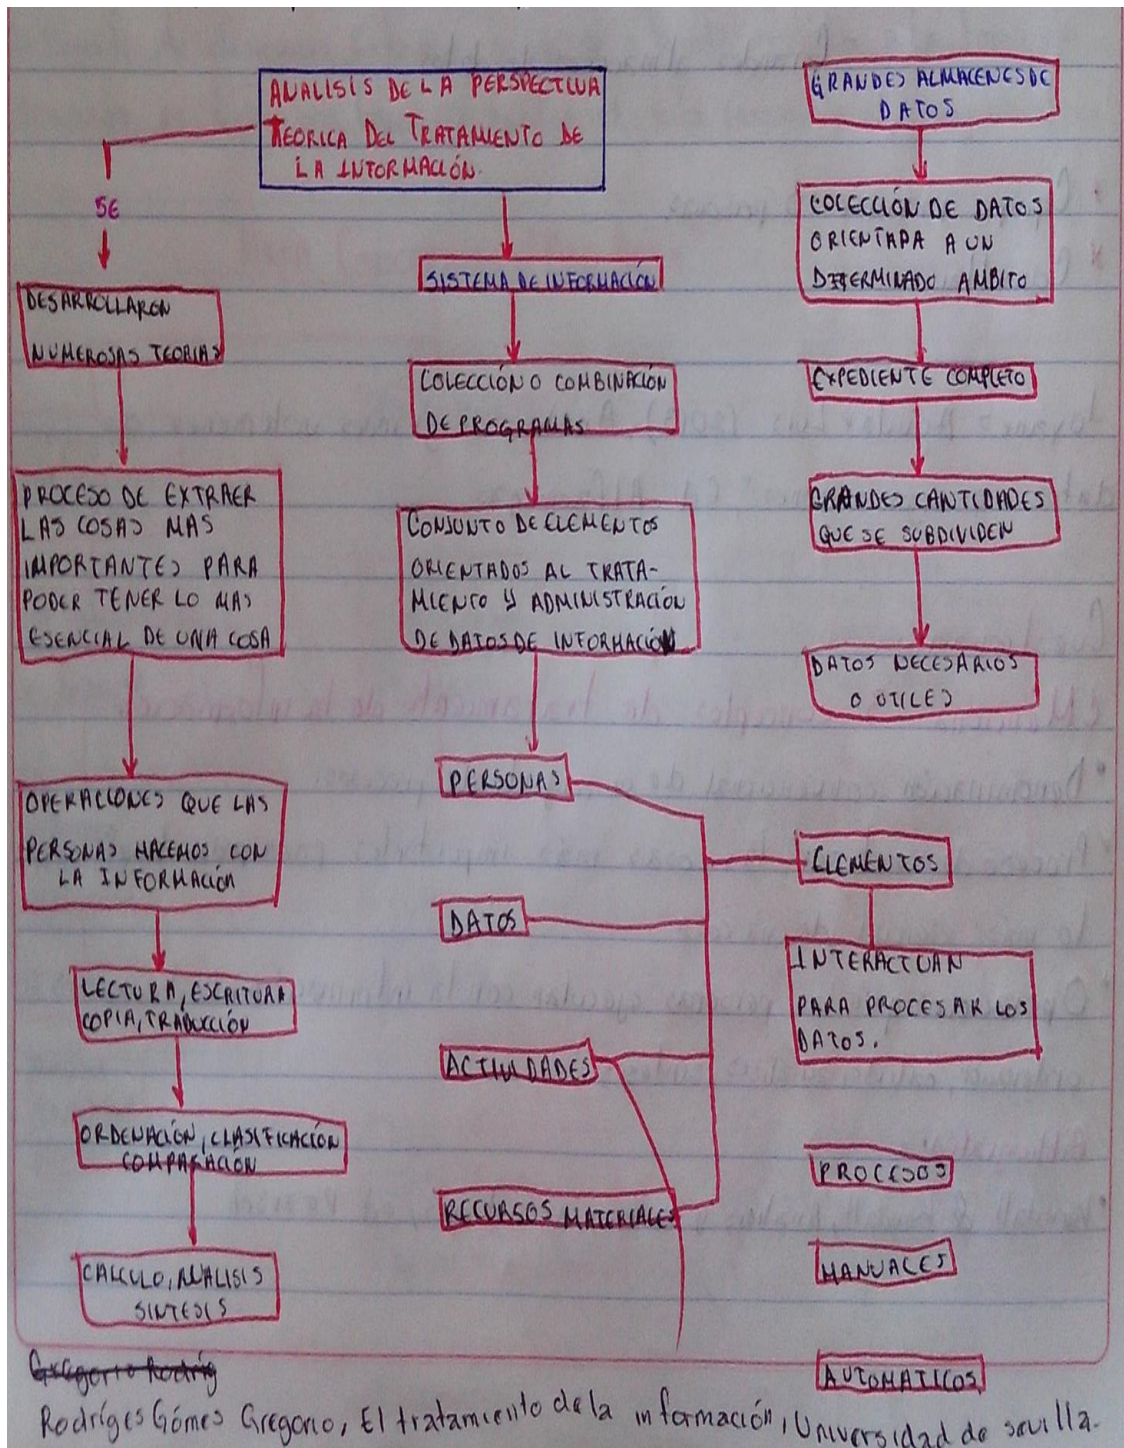 ANALISIS DE LA PERSPECTIVA
TEORICA DEL TRATAMIENTO DE
LA INFORMACIÓN.
SE
DESARROLLARON
NUMEROSAS TEORIAS
PROCESO DE EXTRAER
LAS COSAS MAS
IMPORTANTES PARA
PODER TENER LO MAS
ESENCIAL DE UNA COSA
OPERACIONES QUE LAS
PERSONAS HACEMOS CON
LA INFORMACIÓN
LECTURA, ESCRITURA
COPIA, TRADUCCIÓN
ORDENACIÓN, CLASIFICACIÓN
COMPARACIÓN
CALCULO, ANALISIS
SINTESIS
SISTEMA DE INFORMACIÓN
COLECCIÓN O COMBINACIÓN
DE PROGRAMAS
CONJUNTO DE ELEMENTOS
ORIENTADOS AL TRATA-
MIENTO Y ADMINISTRACIÓN
DE DATOS DE INFORMACIÓN
PERSONAS
DATOS
ACTIVIDADES
RECURSOS MATERIALES
ELEMENTOS
INTERACTUAN
PARA PROCESAR LOS
DATOS.
PROCESOS
MANUALES
AUTOMATICOS
GRANDES ALMACENES DE
DATOS
COLECCIÓN DE DATOS
ORIENTADA A UN
DETERMINADO AMBITO
EXPEDIENTE COMPLETO
GRANDES CANTIDADES
QUE SE SUBDIVIDEN
DATOS NECESARIOS
O UTILES
Gregorio Rodrig
Rodríges Gómes Gregorio, El tratamiento de la información, Universidad de sevilla.